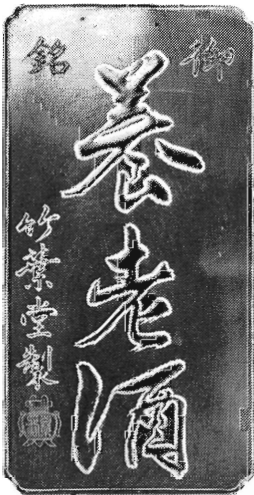 御銘
養老酒
竹葉堂製